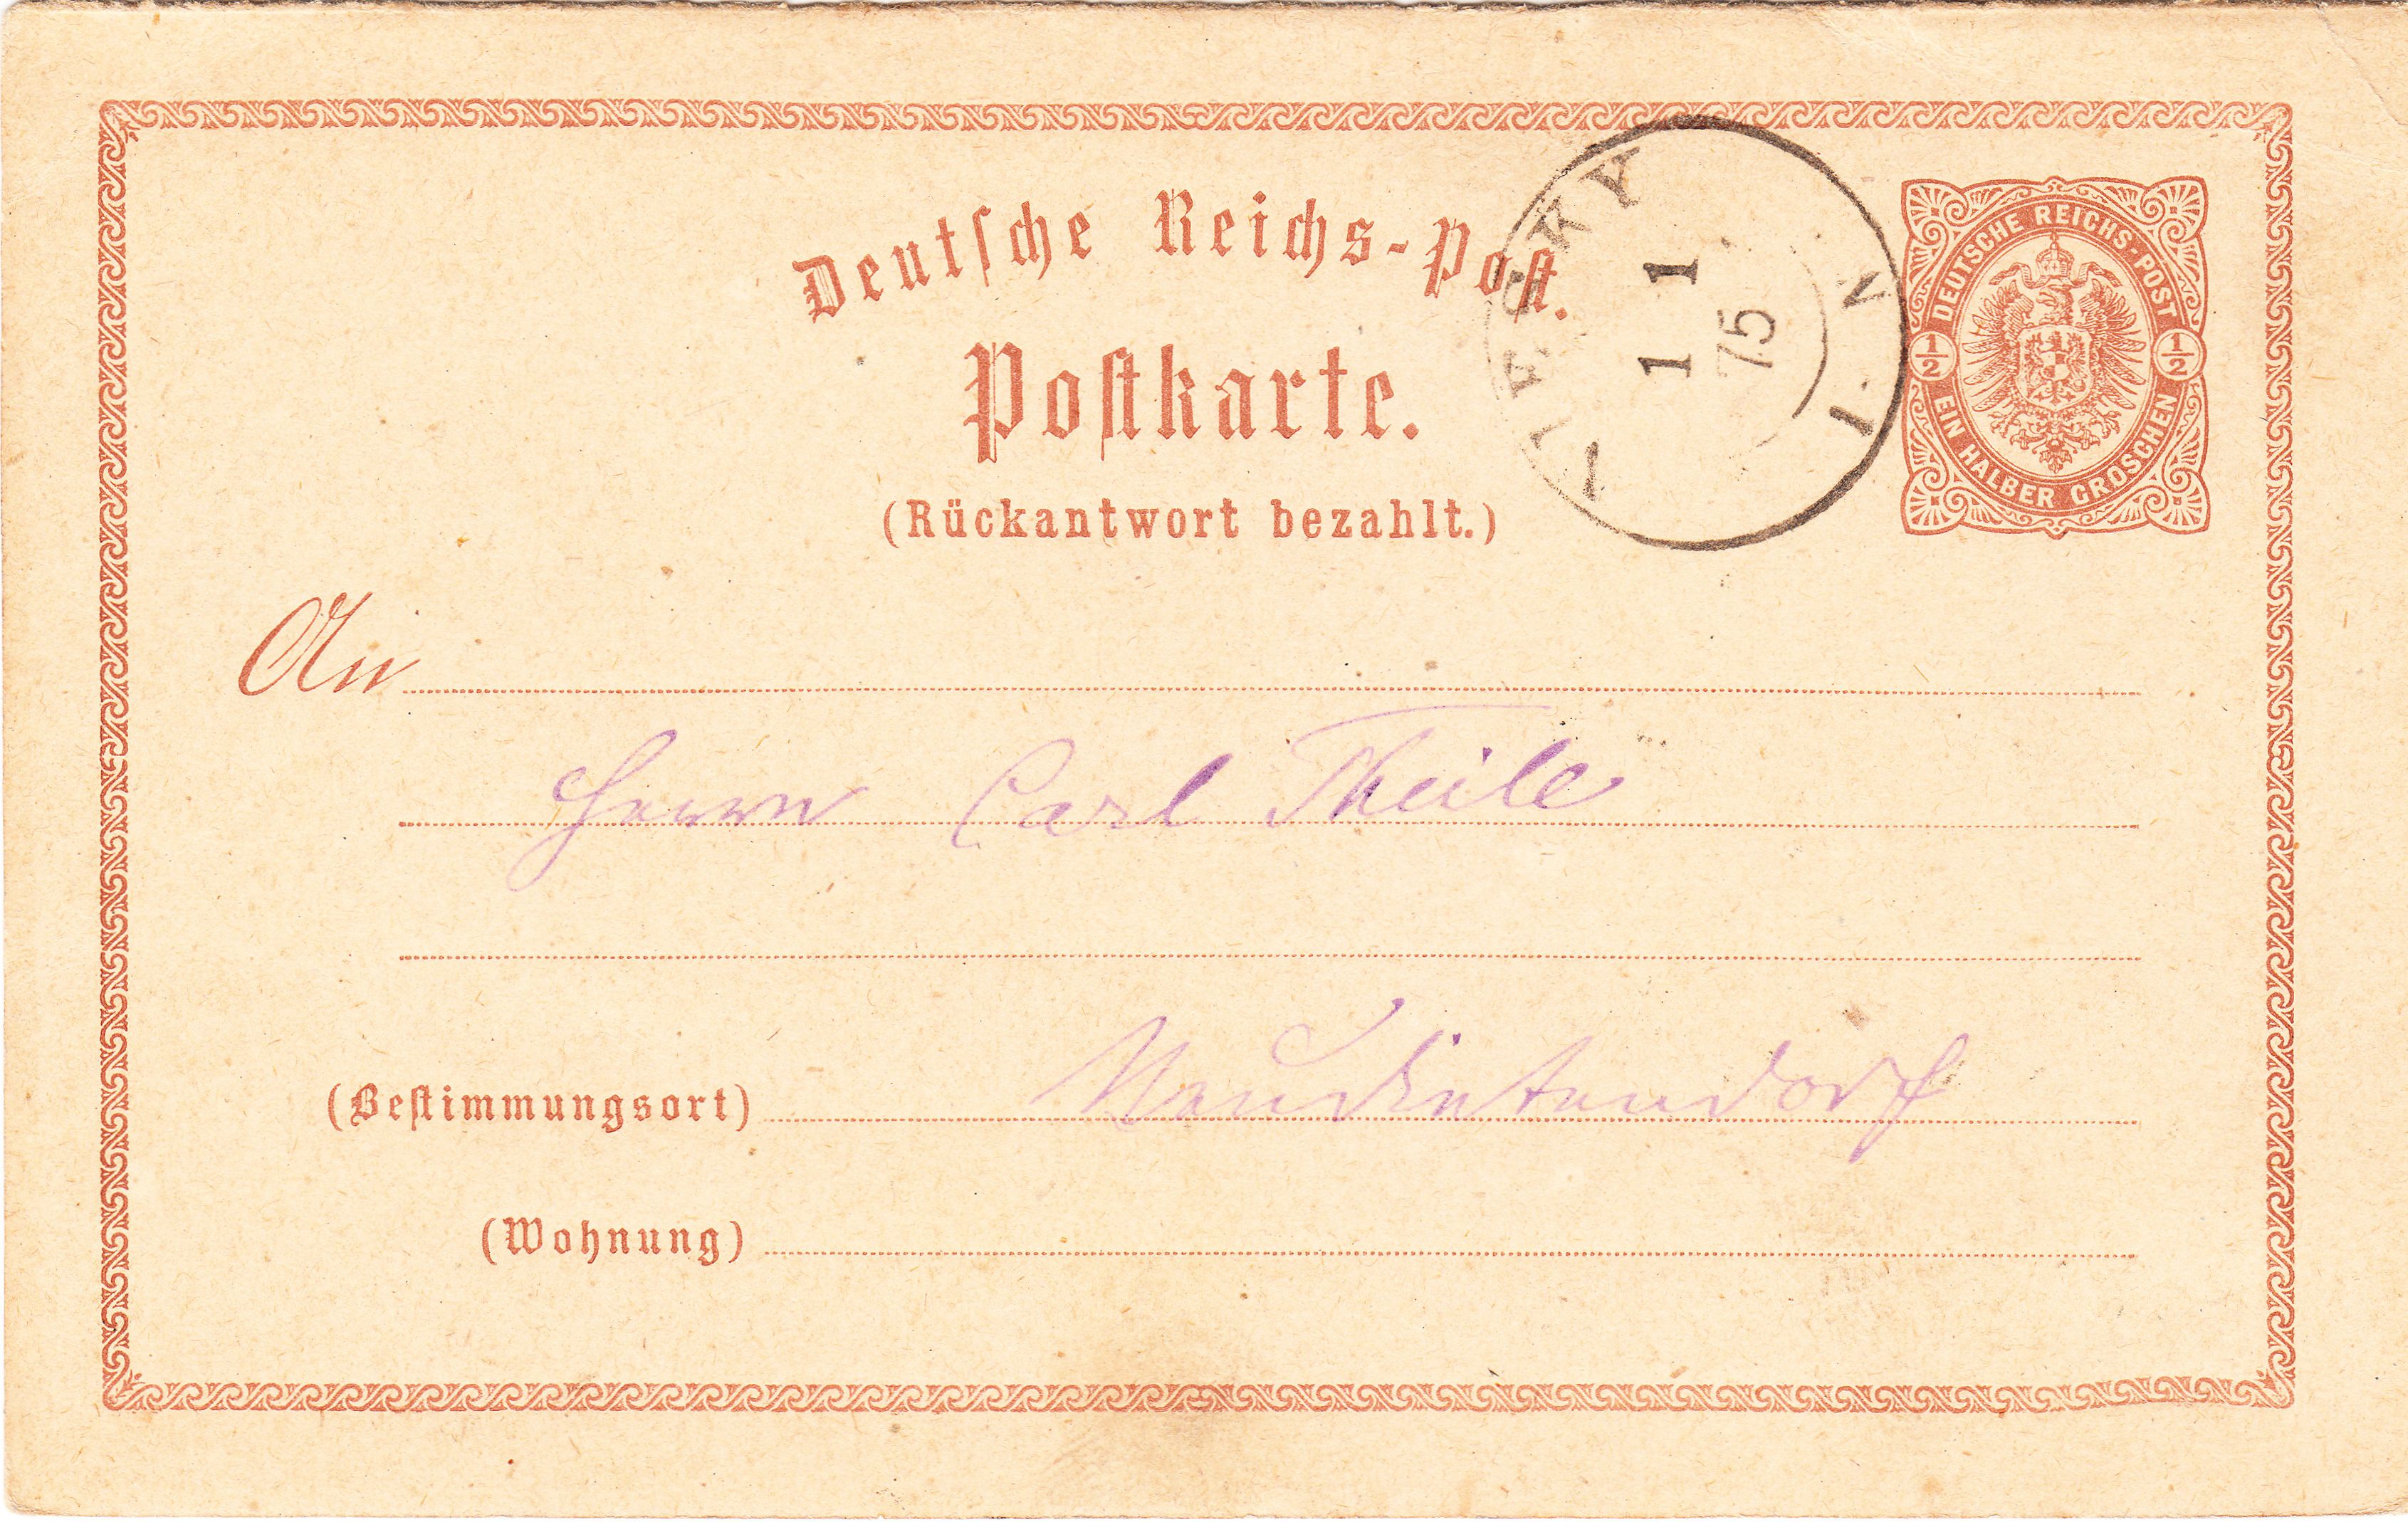 Deutsche Reichs-Post.
Postkarte.
(Rückantwort bezahlt.)
NIESKY
1 1
75
I. N
DEUTSCHE REICHS-POST
1/2 1/2
EIN HALBER GROSCHEN
An
Herrn Carl Theile
(Bestimmungsort) Neudietendorf
(Wohnung)